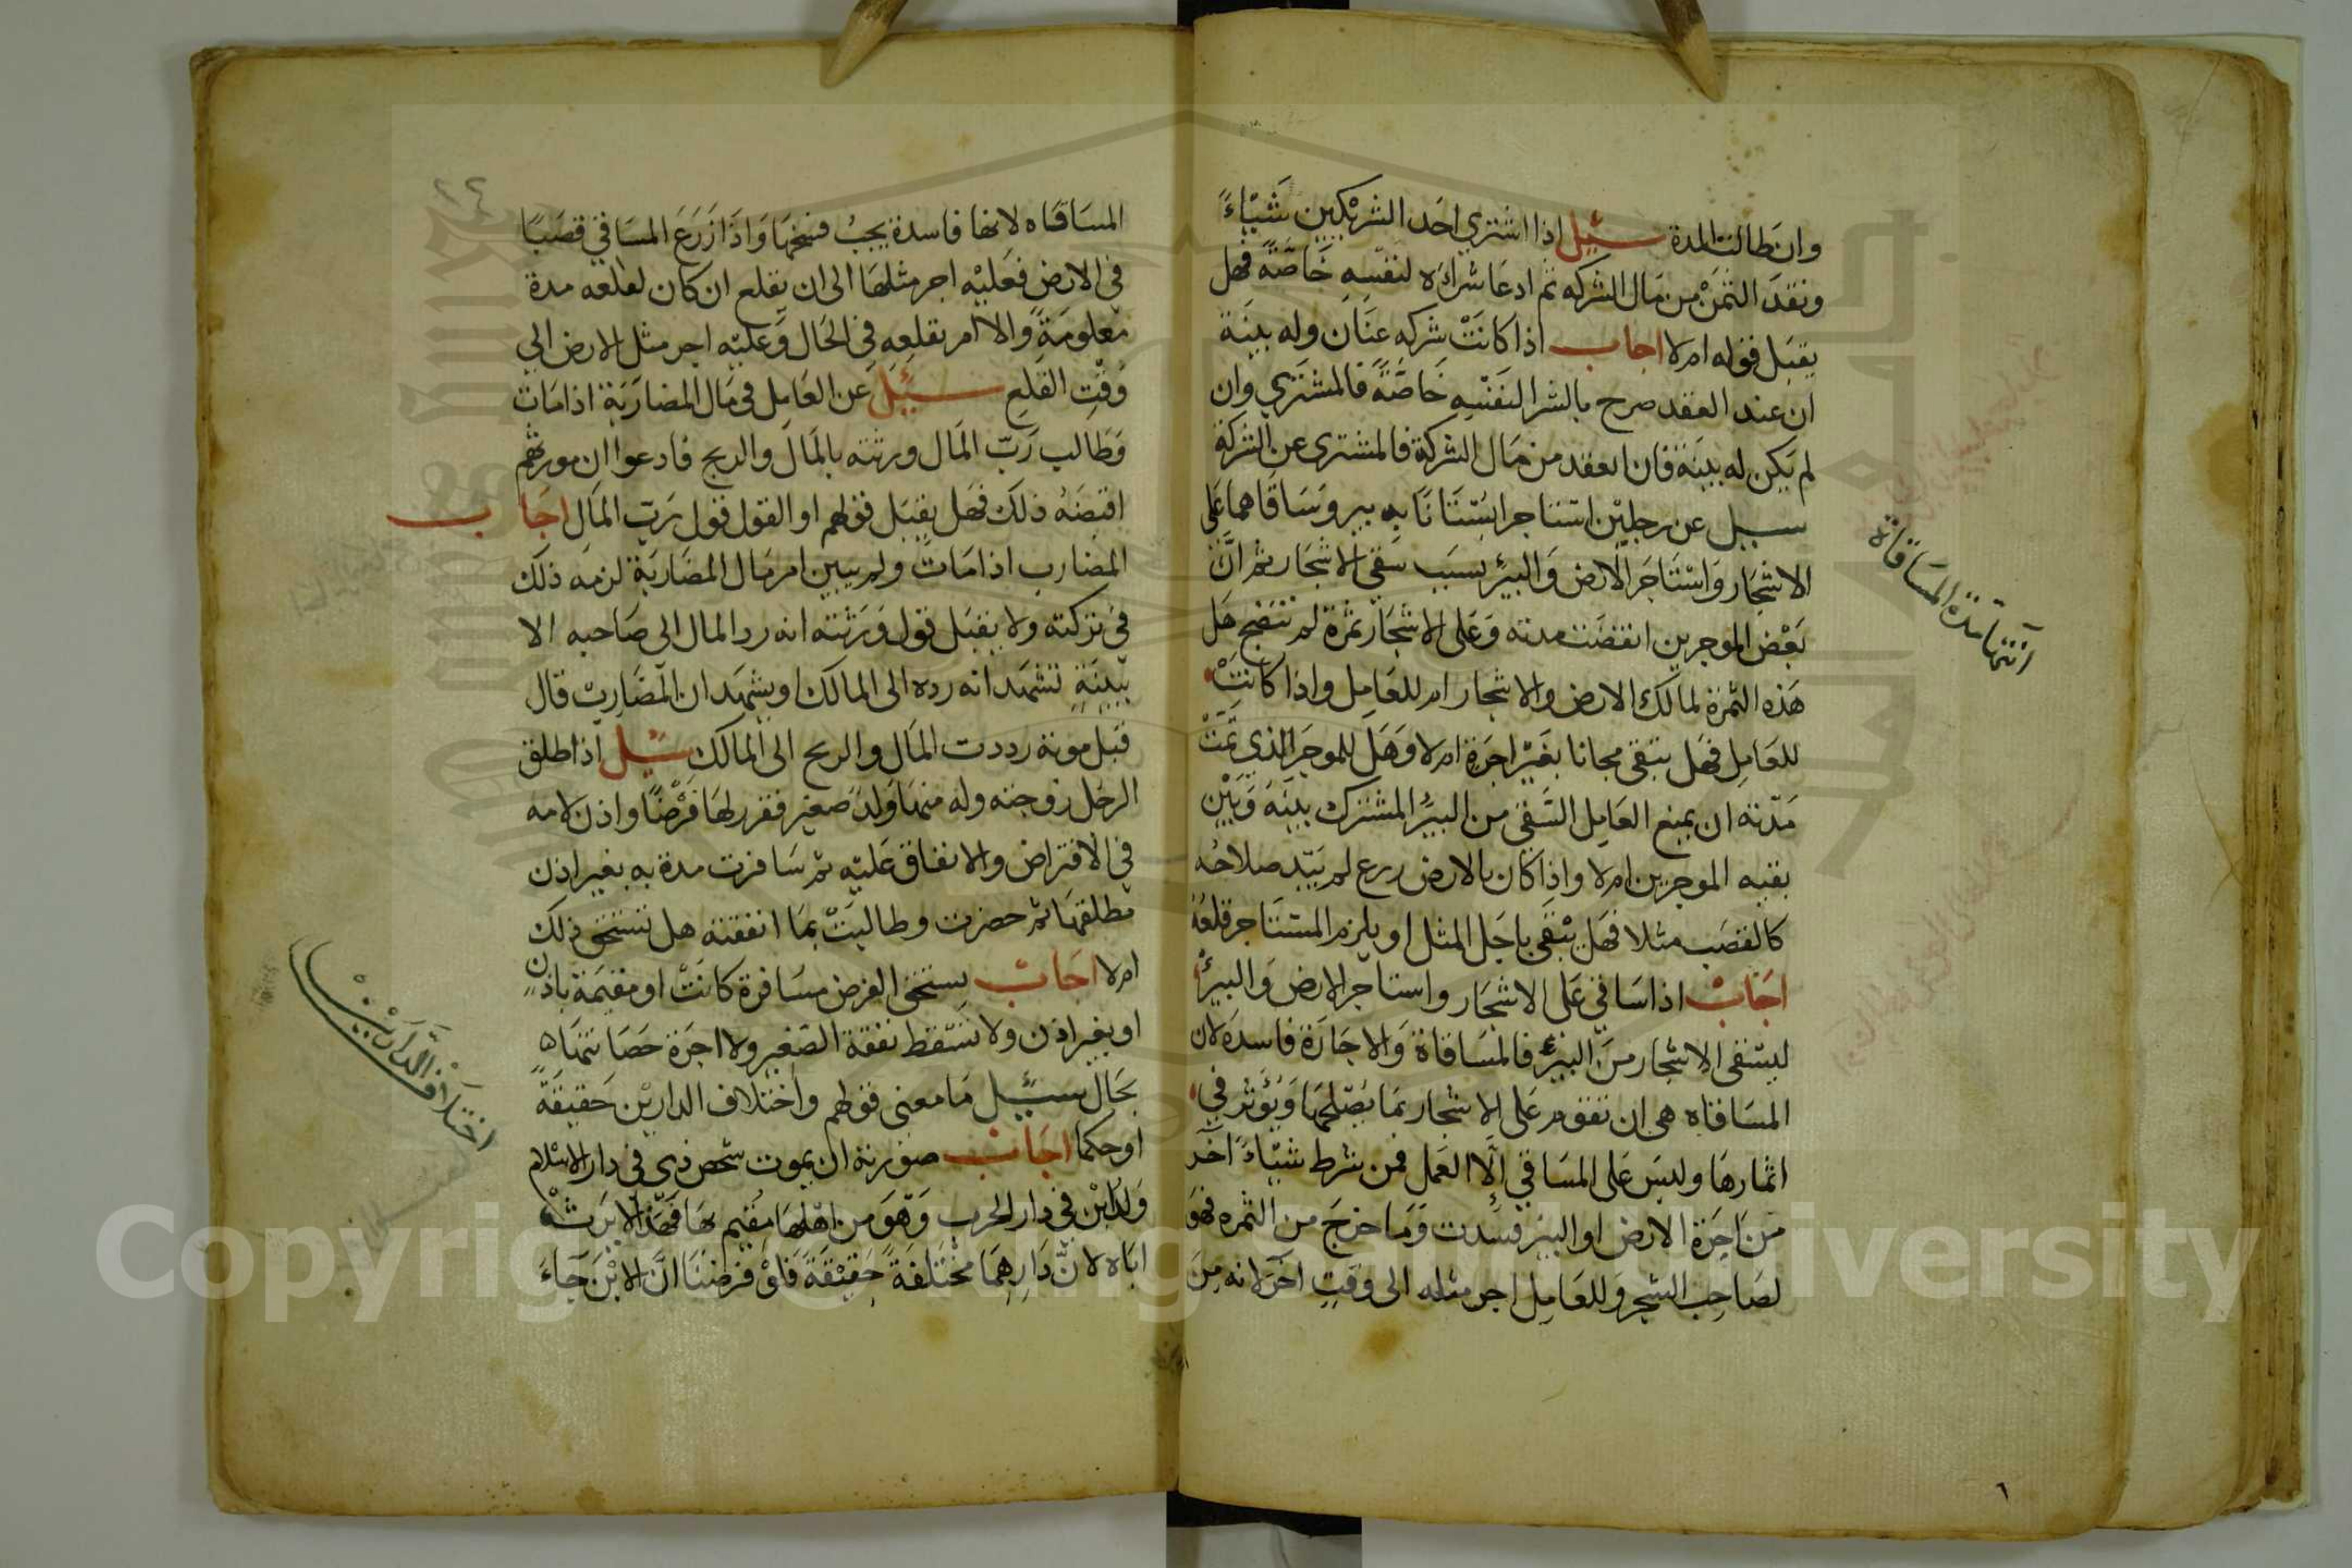 وان طالت المدة سئيل اذا اشتري احد الشريكين شيئاءً
ونقد الثمن من مال الشركه ثم ادعا شراءه لنفسه خاصة فهل
يقبل قوله ام لا اجاب اذا كانت شركه عنان وله بينة
ان عند العقد صرح بالشرا لنفسه خاصة فالمشتري وان
لم يكن له بينة فان العقد من مال الشركة فالمشترى عن الشركة
سيل عن رجلين استاجر ابستانا به بير وساقاهما على
الاشجار واستاجر الارض والبيئر بسبب سقي الاشجار ثم ان
بعض الموجرين انقضت مدته وعلى الاشجار ثمرة لم تنضج هل
هذه الثمرة لمالك الارض والاشجار ام للعامل واذا كانت
للعامل فهل تبقى مجانا بغير اجرة ام لا وهل للموجر الذي تمت
مدته ان يمنع العامل السقى من البيئر المشترك بينه وبين
بقيه الموجرين ام لا واذا كان بالارض زرع لم يبد صلاحه
كالقصب مثلا فهل يبقى باجل المثل او يلزم المستاجر قلعه
اجاب اذا ساقى على الاشجار واستاجر الارض والبيئر
ليسقى الاشجار من البيئر فالمساقاة والاجارة فاسدة لان
المساقاه هى ان تقوم على الاشجار بما يصلحها ويؤثر في
اثمارها وليس على المساقي الا العمل فمن شرط شيئاء آخر
من اجرة الارض او البير فسدت وما خرج من الثمره فهو
لصاحب الشجر وللعامل اجر مثله الى وقت آخر لانه من
انتها مدة المساقاة
٢٤
المساقاه لانها فاسدة يجب فسخها واذا زرع المساقي قصبا
في الارض فعليه اجر مثلها الى ان يقلع ان كان لقلعه مدة
معلومة والا امر بقلعه في الحال وعليه اجر مثل الارض الي
وقت القلع سئيل عن العامل في مال المضاربة اذا مات
وطالب رب المال ورثته بالمال والربح فادعوا ان مورثهم
اقبضه ذلك فهل يقبل قولهم او القول قول رب المال اجاب
المضارب اذا مات ولم يبين امر مال المضاربة لزمه ذلك
في تركته ولا يقبل قول ورثته انه رد المال الى صاحبه الا
ببينة تشهد انه رده الى المالك او يشهد ان المضارب قال
قبل موته رددت المال والربح الى المالك سئيل اذا طلق
الرجل زوجته وله منها ولد صغير فقرر لها فرضا واذن لامه
في الاقتراض والانفاق عليه ثم سافرت مدة به بغير اذن
مطلقها ثم حضرت وطالبت بما انفقته هل تستحق ذلك
ام لا اجاب يستحق الفرض مسافرة كانت او مقيمة باذن
او بغير اذن ولا تسقط نفقة الصغير ولا اجرة حضانتها
بحال سئيل ما معنى قولهم واختلاف الدارين حقيقة
او حكما اجاب صورته ان يموت شخص ذمى في دار الاسلام
وله ابن في دار الحرب وهو من اهلها مقيم بها فهذا لا يرث
اباه لان داريهما مختلفة حقيقة فلو فرضنا ان الابن جاء
اختلاف الدارين
Copyright © King University